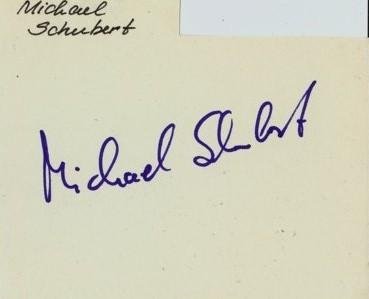 Michael
Schubert
Michael Schubert